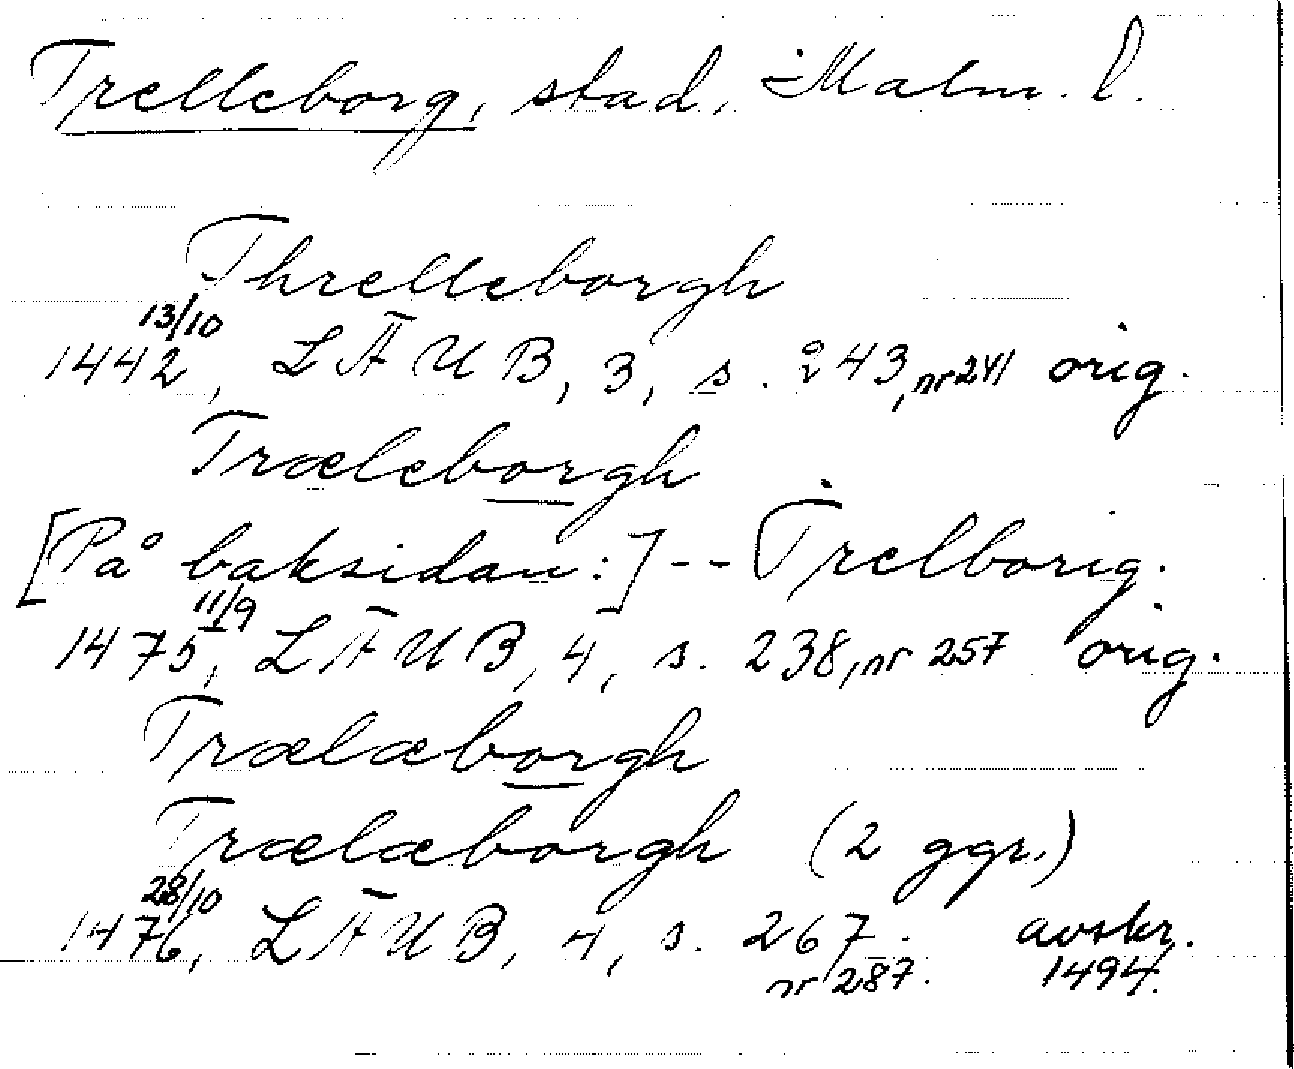 Trelleborg, stad, Malm. l.
Threlleborgh
13/10
1442, LÄUB, 3, s. 243, nr 241 orig.
Træleborgh
[På baksidan:] -- Trelborig.
11/9
1475, LÄUB, 4, s. 238, nr 257 orig.
Trælæborgh
Trælæborgh (2 ggr.)
28/10
1476, LÄUB, 4, s. 267. avskr.
nr 287. 1494.